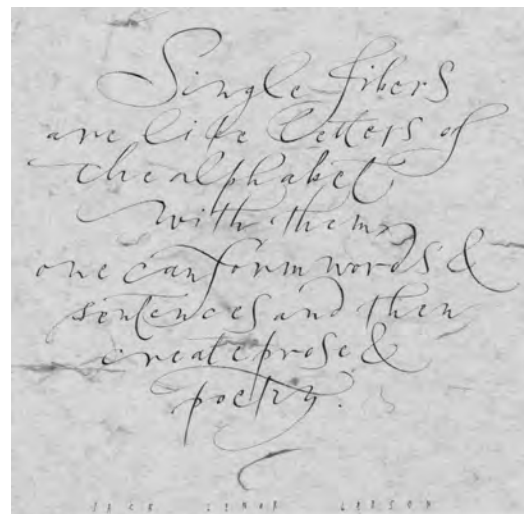 Single fibers
are like letters of
the alphabet
with them
one can form words &
sentences and then
create prose &
poetry.
JACK LENOR LARSEN